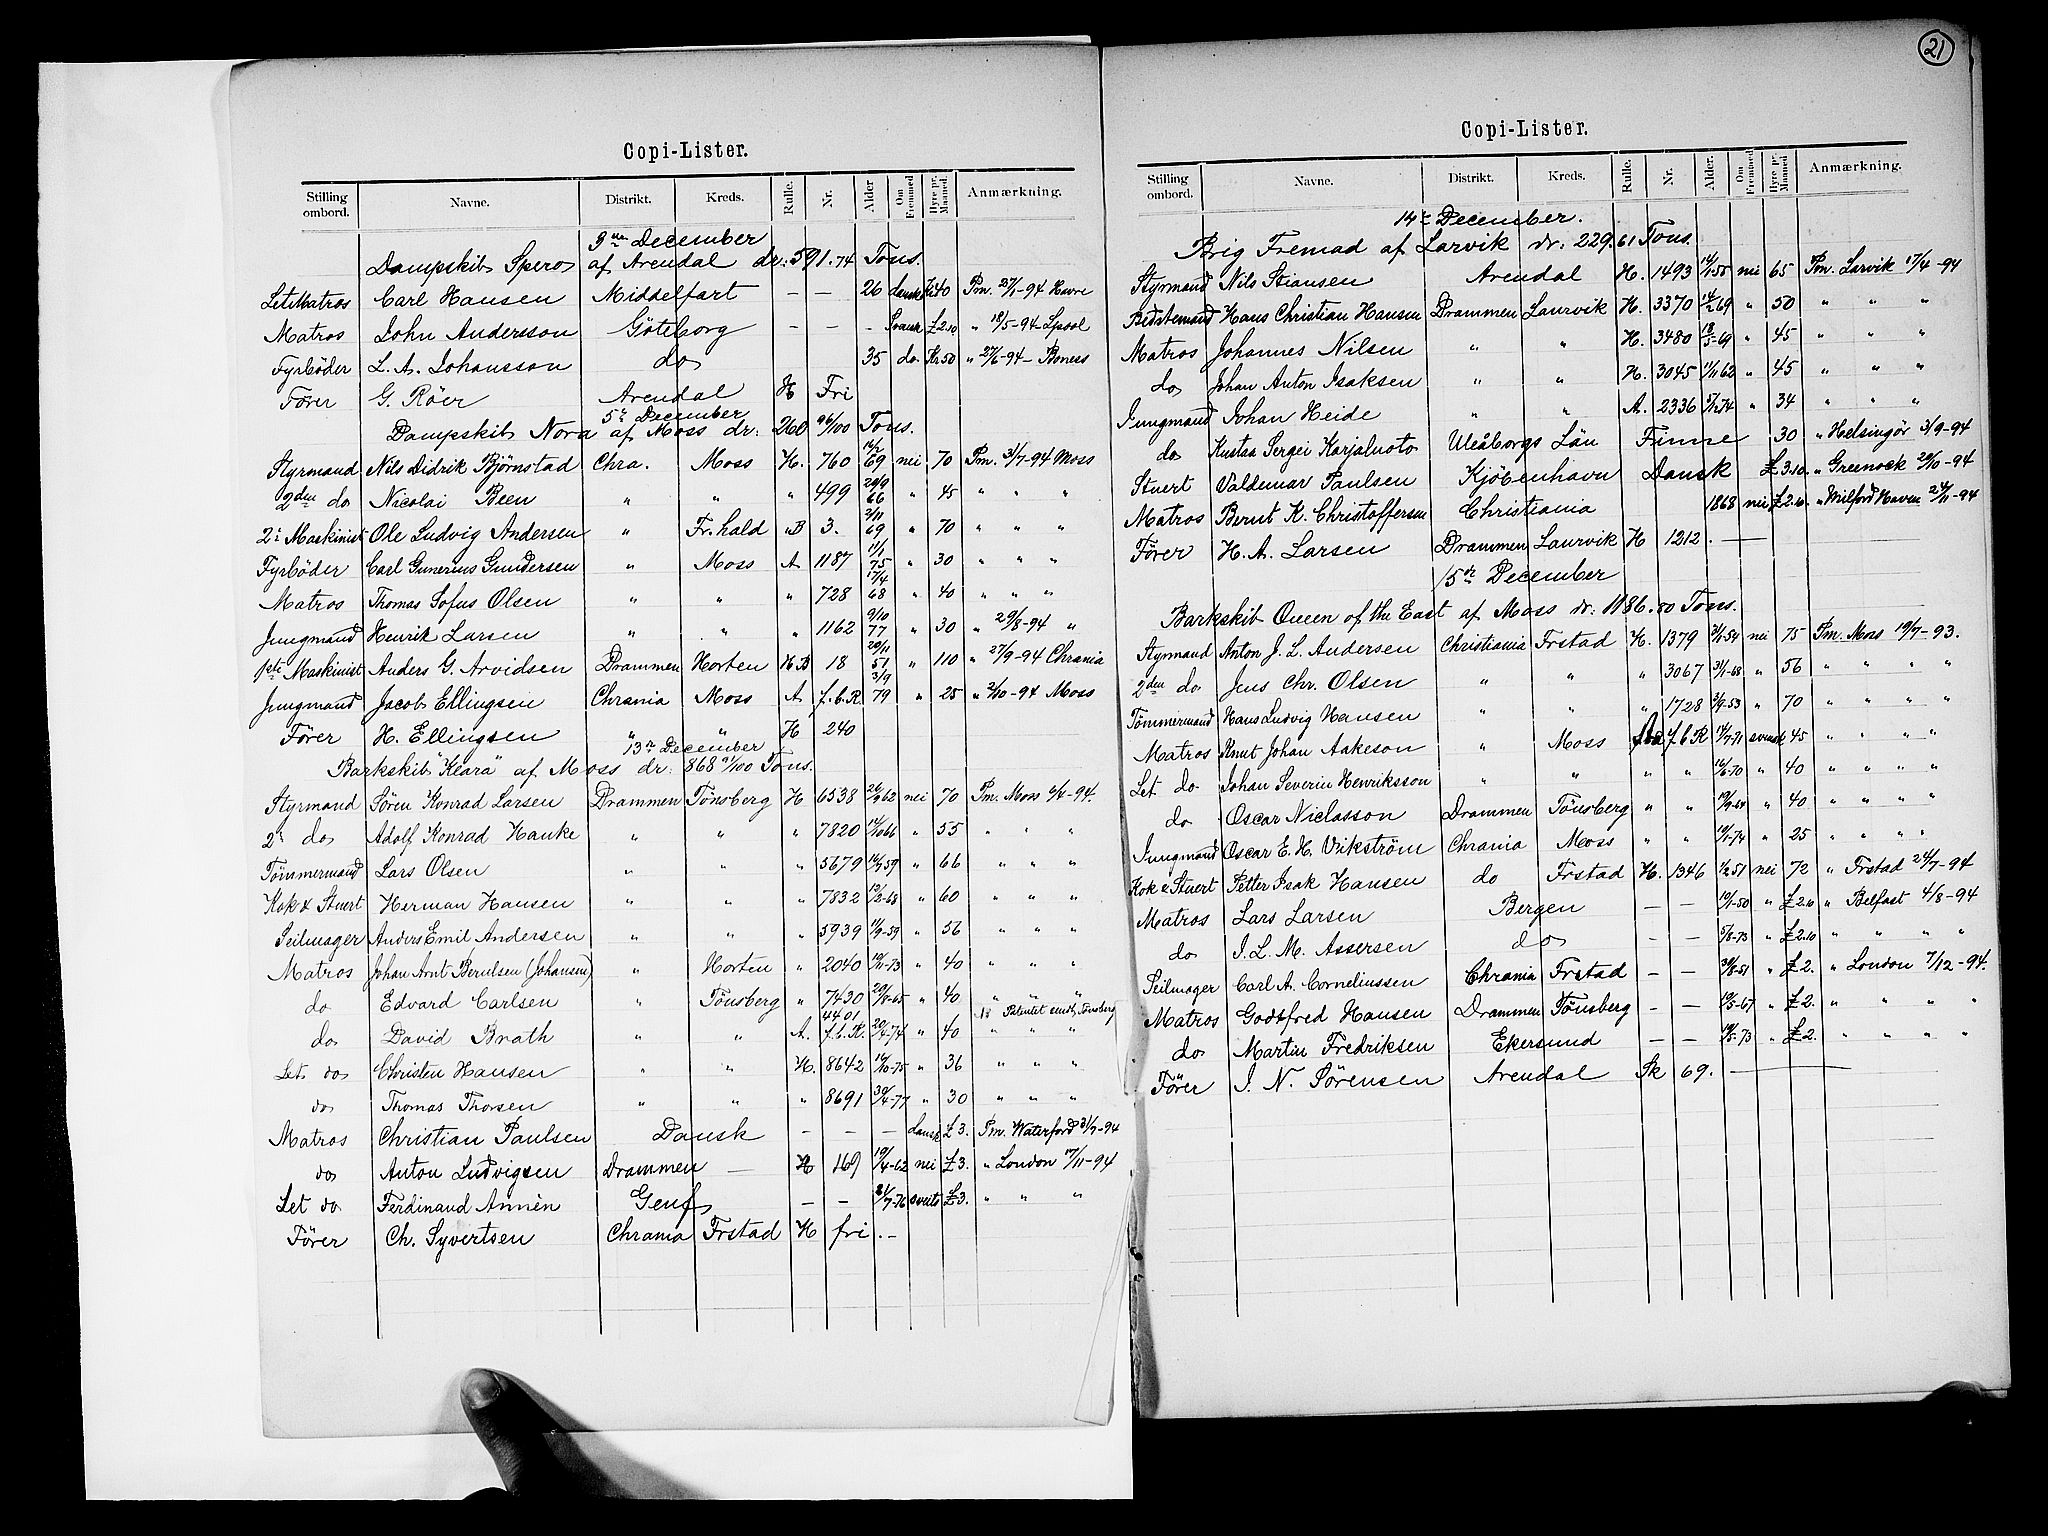 Copi-Lister.
Stilling ombord. Navne. Distrikt. Kreds. Rulle. Nr. Alder Om Fremmed Hyre pr. Maaned. Anmærkning.
3die December
Dampskib Spero af Arendal dr: 591.74 Tons.
Let Matros Carl Hansen Middelfart — — 26 dansk Kr 40 Pm. 27/1-94 Havre
Matros John Andersson Göteborg — — - Svensk £2.10 " 18/5-94 - Lpool
Fyrböder L. A. Johansson do 35 do. Kr 50 " 27/6-94 - Boness
Förer G. Röer Arendal H Fri
5te December
Dampskib Nora af Moss dr: 260 96/100 Tons.
Styrmand Nils Didrik Björnstad Chra. Moss H. 760 69 nei 70 Pm. 3/7-94 Moss
2den do Nicolai Been " " " 499 20/9 66 " 45 " " "
2n Maskinist Ole Ludvig Andersen " Fr.hald "B 3. 2/11 69 " 70 " " "
Fyrböder Carl Gunerius Gundersen " Moss A 1187 11/1 75 " 30 " " "
Matros Thomas Sofus Olsen " " " 728 17/4 68 " 40 " " "
Jungmand Henrik Larsen " " " 1162 9/10 77 " 30 " 29/8-94 "
1ste Maskinist Anders G. Arvidsen Drammen Horten H B 18 20/11 51 " 110 " 27/9-94 Chrania
Jungmand Jacob Ellingsen Chrania Moss A f.b.R. 3/9 79 " 25 " 2/10-94 Moss
Förer H. Ellingsen " " H 240
13de December
Barkskib "Klara" af Moss dr: 868 91/100 Tons.
Styrmand Sören Konrad Larsen Drammen Tönsberg H 6538 26/9 62 nei 70 Pm. Moss 6/4-94.
2n do Adolf Konrad Hanke " " " 7820 14/10 66 " 55 " " "
Tömmermand Lars Olsen " " " 5679 14/7 59 " 66 " " "
Kok & Stuert Herman Hansen " " " 7832 12/2-68 " 60 " " "
Seilmager Anders Emil Andersen " " " 5939 11/9-59 " 56 " " "
Matros Johan Arnt Berntsen (Johansen) " Horten " 2040 19/11-73 " 40 " " "
do Edvard Carlsen " Tönsberg " 7430 29/8-65 " 40 " " "
do David Brath " " A. 4401 f.b.R. 20/4-74 " 40 Patentet sendt Tönsberg " " "
Let do Christen Hansen " " H. 8642 14/10-75 " 36 " " "
do Thomas Thorsen " " " 8691 30/4-77 " 30 " " "
Matros Christian Paulsen Dansk — — — dansk £3. Pm. Waterford 31/7-94
do Anton Ludvigsen Drammen — H 169 19/4-62 nei £3. " London 17/11-94
Let do Ferdinand Annèn Genf — — 21/7-76 sveits £3. " " "
Förer Ch. Syvertsen Chrania Frstad H fri . —
21
Copi-Lister.
Stilling ombord. Navne. Distrikt. Kreds. Rulle. Nr. Alder. Om Fremmed Hyre pr. Maaned Anmærkning.
14de December.
Brig Fremad af Larvik dr. 229.61 Tons.
Styrmand Nils Stiansen Arendal H. 1493 14/1-55 nei 65 Pm. Larvik 17/4-94
Bedstemand Hans Christian Hansen Drammen Laurvik H. 3370 14/2-69 " 50 " " "
Matros Johannes Nilsen " " H. 3480 18/5-69 " 45 " " "
do Johan Anton Isaksen " " H. 3045 1/11 62 " 45 " " "
Jungmand Johan Heide " " A. 2336 5/12 74 " 34 " " "
do Kustaa Sergei Karjaluoto Uleåborgs Län Finne 30 " Helsingör 3/9-94
Stuert Valdemar Paulsen Kjöbenhavn Dansk £3.10. " Greenock 29/10-94
Matros Bernt K. Christoffersen Christiania 1868 nei £2.10. " Milford Haven 24/11-94
Förer H. A. Larsen Drammen Laurvik H 1212. —
15de December
Barkskib Queen of the East af Moss dr: 1186.80 Tons.
Styrmand Anton J. L. Andersen Christiania Frstad H. 1379 21/1-54 nei 75 Pm. Moss 19/7-93.
2den do Jens Chr. Olsen " " " 3067 31/1-68 " 56 " " " "
Tömmermand Hans Ludvig Hansen " " " 1728 2/9-53 " 70 " " " "
Matros Knut Johan Aakeson " Moss f b R 14/7-71 svensk 45 " " " "
Let do Johan Severin Henriksson " " " " 16/6-70 " 40 " " " "
do Oscar Niclasson Drammen Tönsberg " " 19/9-64 " 40 " " " "
Jungmand Oscar E. H. Vikström Chrania Moss " " 19/1-74 " 25 " " " "
Kok & Stuert Petter Isak Hansen do Frstad H. 1346 1/2 51 nei 72 " Frstad 24/7-94
Matros Lars Larsen Bergen — — 19/1-50 " £2.10 " Belfast 4/8-94
do J. L. M. Assersen do — — 5/8-73 " £2.10 " " " "
Seilmager Carl A. Corneliussen Chrania Frstad — — 30/8-51 " £2. " London 7/12-94.
Matros Godtfred Hansen Drammen Tönsberg - — 19/5-67 " £2. " " " "
do Martin Fredriksen Ekersund — — 18/5-73 " £2. " " " "
Förer J. N. Sörensen Arendal Sk 69. —